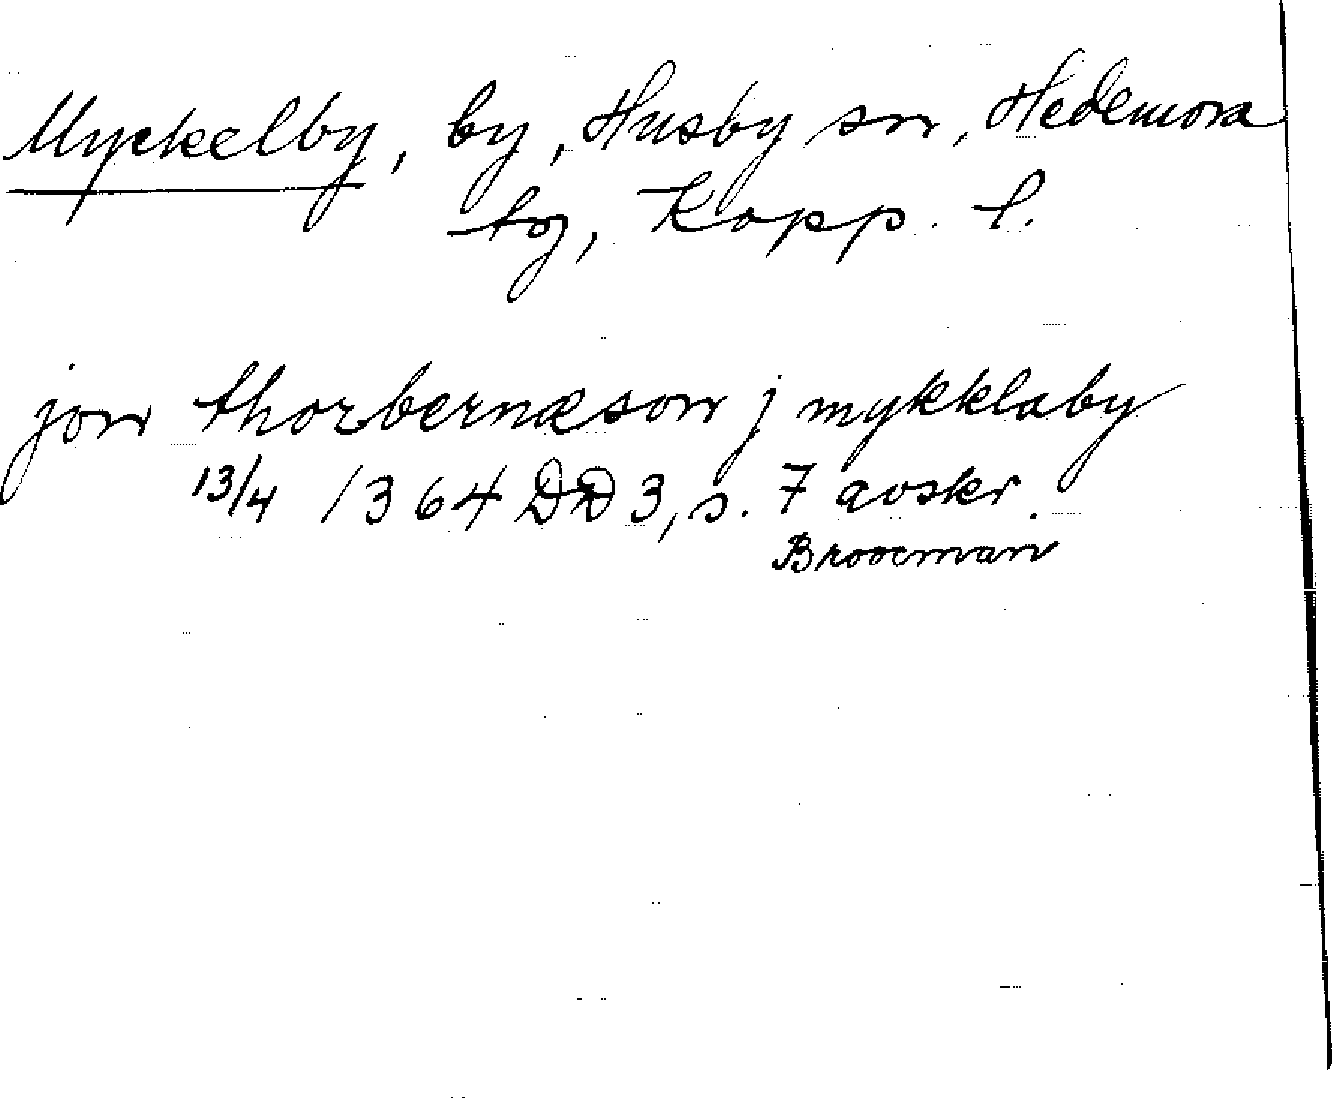 Myckelby, by, Husby sn, Hedemora
tg, Kopp. l.
jon thorbernæson j mykklaby
13/4 1364 DD 3, s. 7 avskr.
Brooman